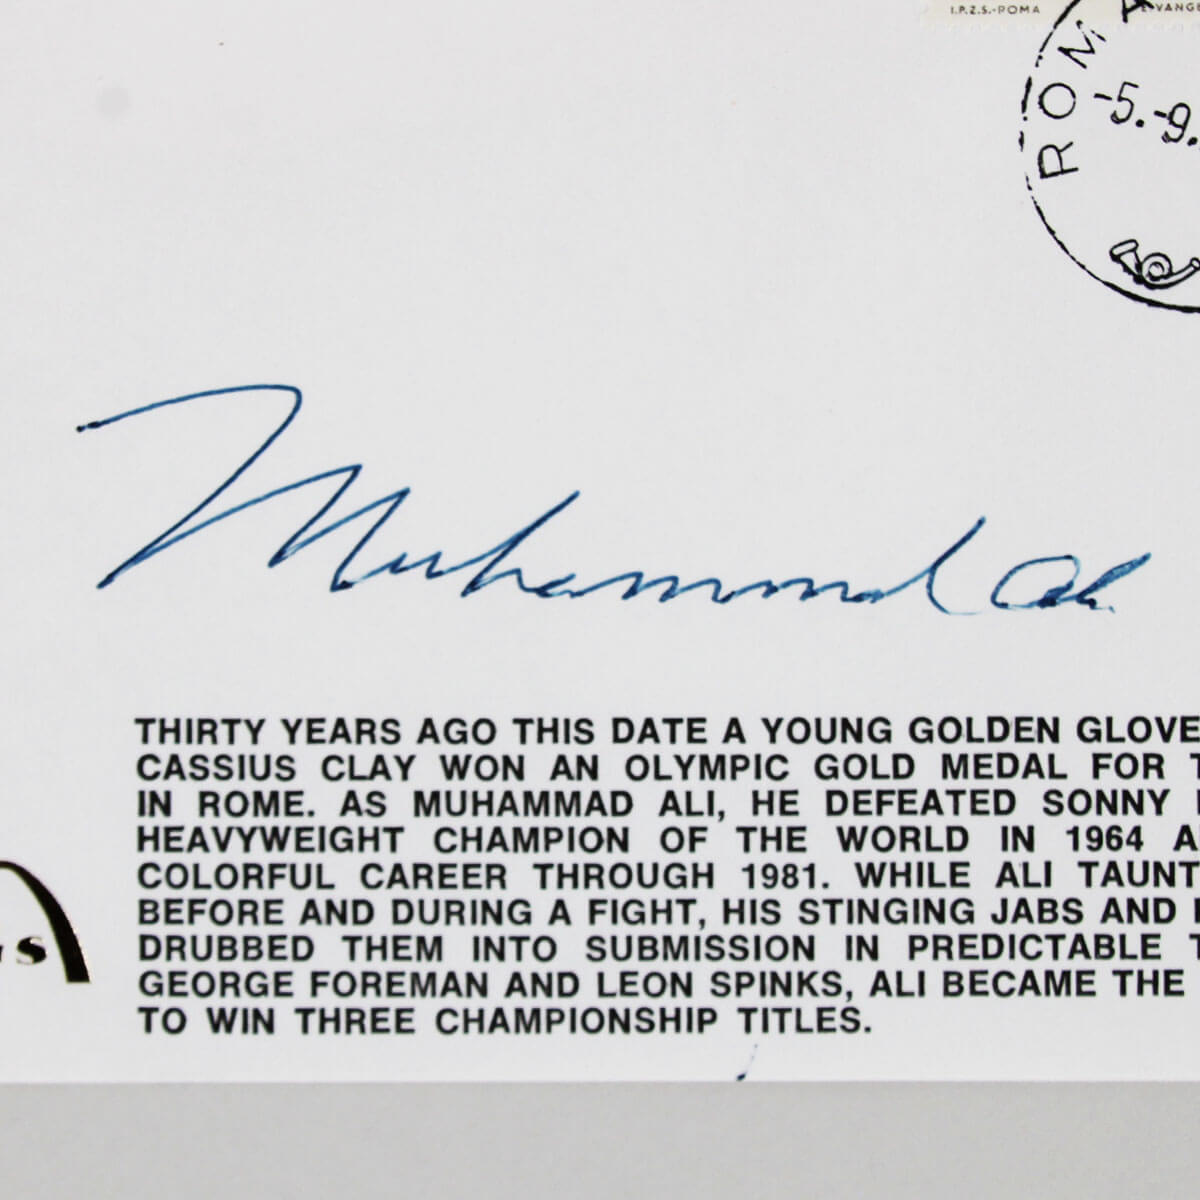 I.P.Z.S.-ROMA
ROMA
-5.-9.
Muhammad Ali
THIRTY YEARS AGO THIS DATE A YOUNG GOLDEN GLOVE
CASSIUS CLAY WON AN OLYMPIC GOLD MEDAL FOR T
IN ROME. AS MUHAMMAD ALI, HE DEFEATED SONNY
HEAVYWEIGHT CHAMPION OF THE WORLD IN 1964 A
COLORFUL CAREER THROUGH 1981. WHILE ALI TAUNT
BEFORE AND DURING A FIGHT, HIS STINGING JABS AND
DRUBBED THEM INTO SUBMISSION IN PREDICTABLE T
GEORGE FOREMAN AND LEON SPINKS, ALI BECAME THE
TO WIN THREE CHAMPIONSHIP TITLES.